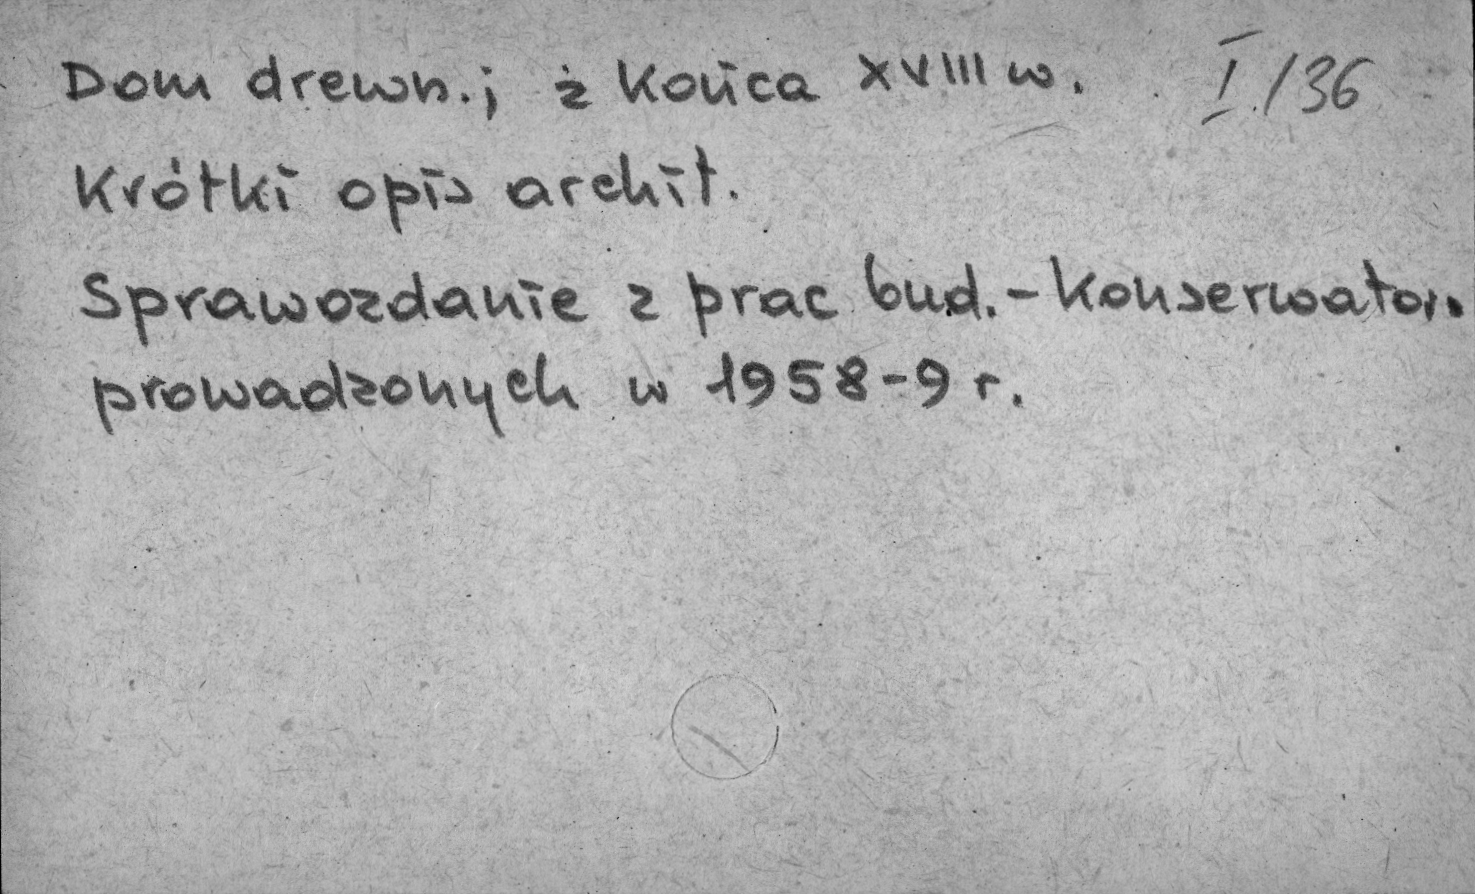 Dom drewn.; z końca XVIII w. I./36
Krótki opis archit.
Sprawozdanie z prac bud.-konserwator.
prowadzonych w 1958-9 r.